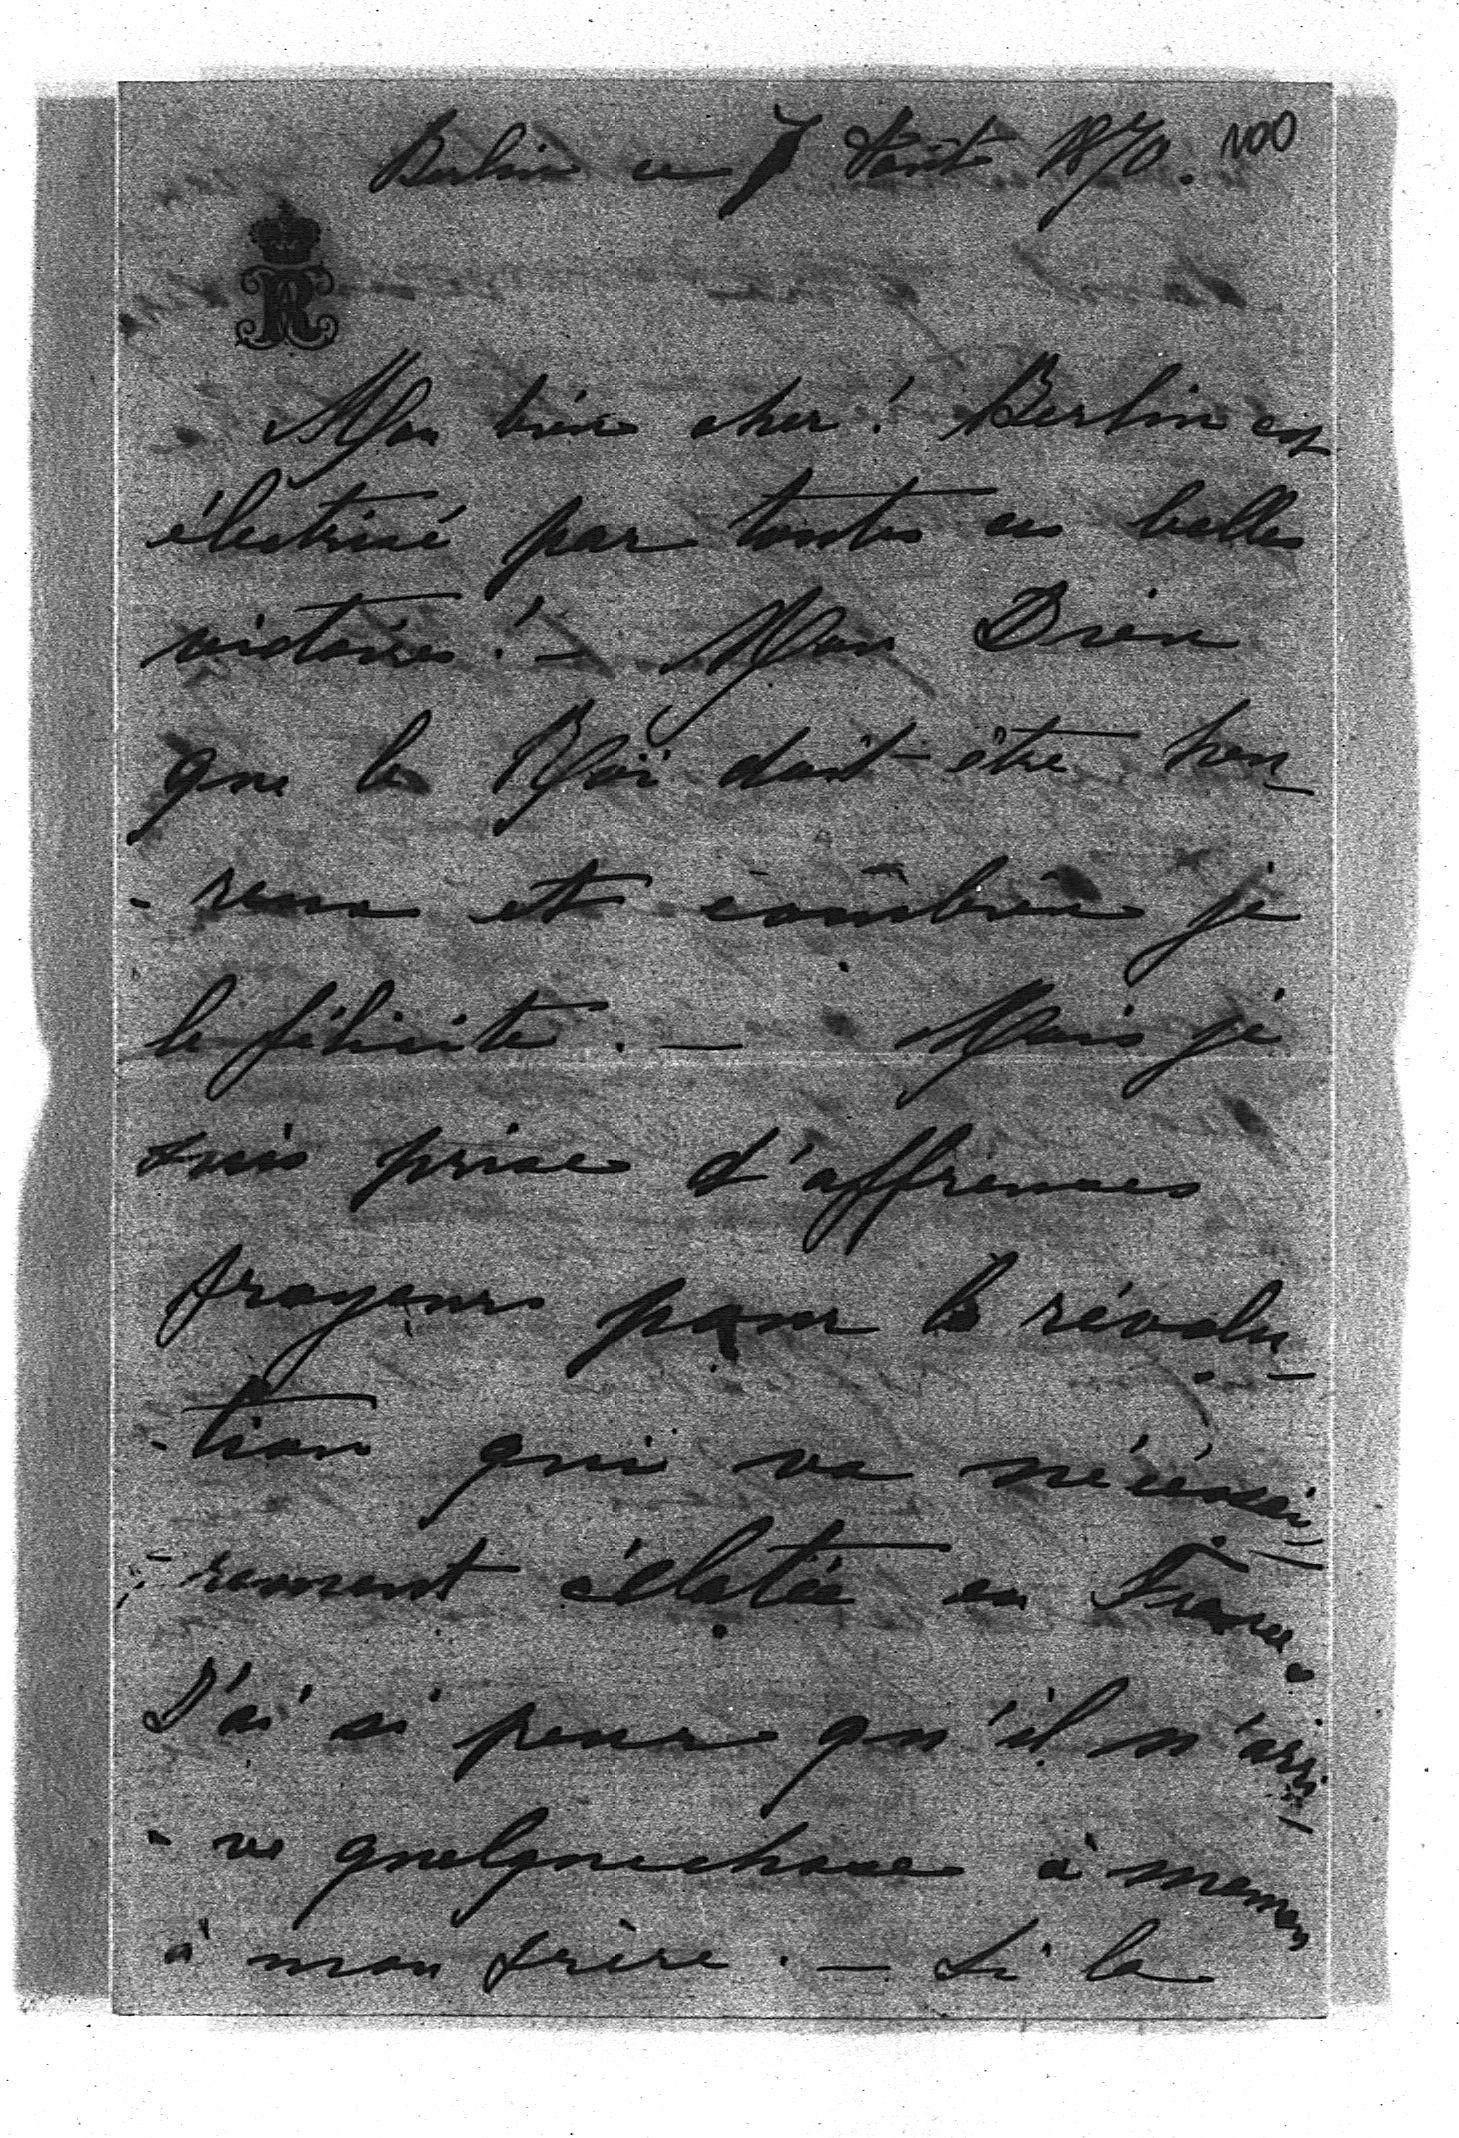 Berlin ce 7 Août 1870.
100
R
Mon bien cher! Berlin est
électrisé par toutes ces belles
victoires! — Mon Dieu
que le Roi doit être heu-
-reux et combien je
le félicite. — Mais je
suis prise d'affreuses
frayeurs pour la révolu-
-tion qui va nécéssai-
-rement éclatée en France.
J'ai si peur qu'il n'arri-
-ve quelquechose à maman
à mon frère. — Si la